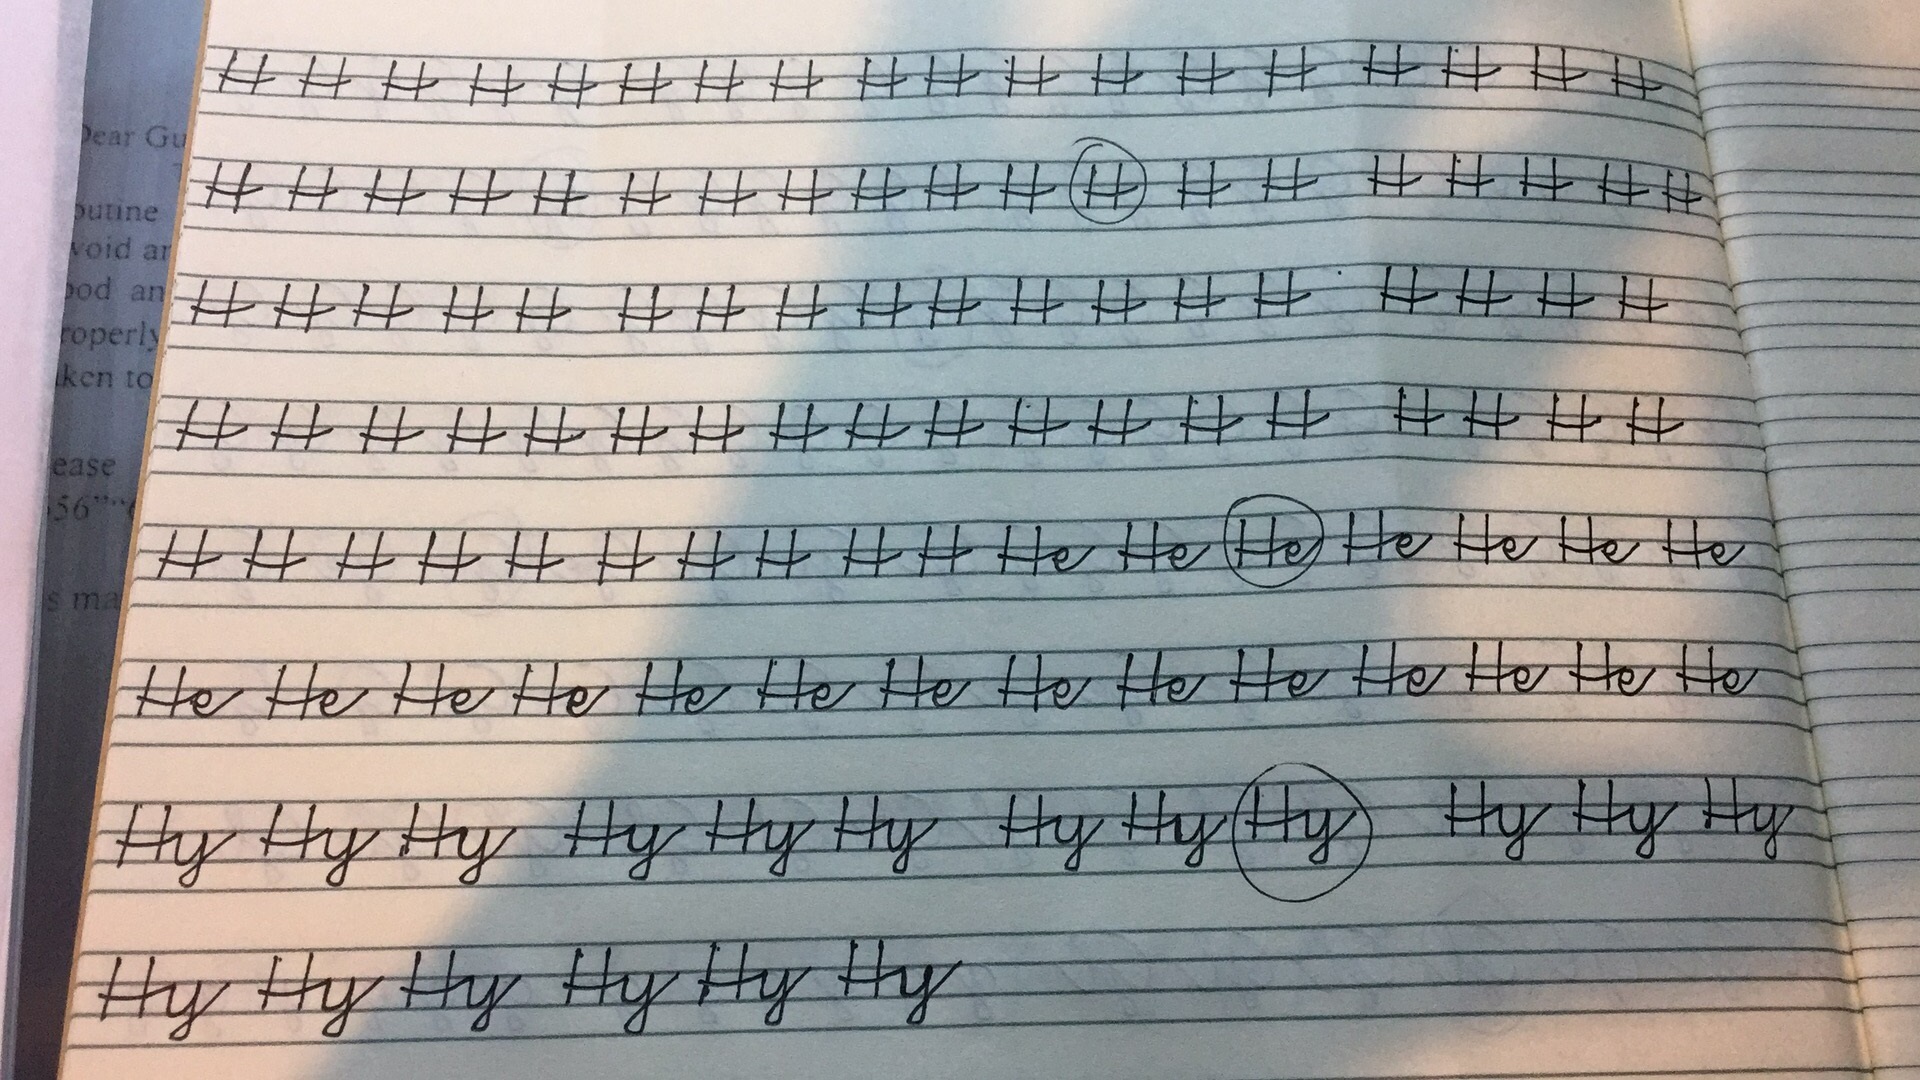 Dear Gu
outine
void ar
ood an
roperly
ken to
ease
s ma
H H H H H H H H H H H H H H H H H H
H H H H H H H H H H H H H H H H H H H
H H H H H H H H H H H H H H H H H H
H H H H H H H H H H H H H H H H H H
H H H H H H H H H H He He He He He He He
He He He He He He He He He He He He He He
Hy Hy Hy Hy Hy Hy Hy Hy Hy Hy Hy Hy
Hy Hy Hy Hy Hy Hy